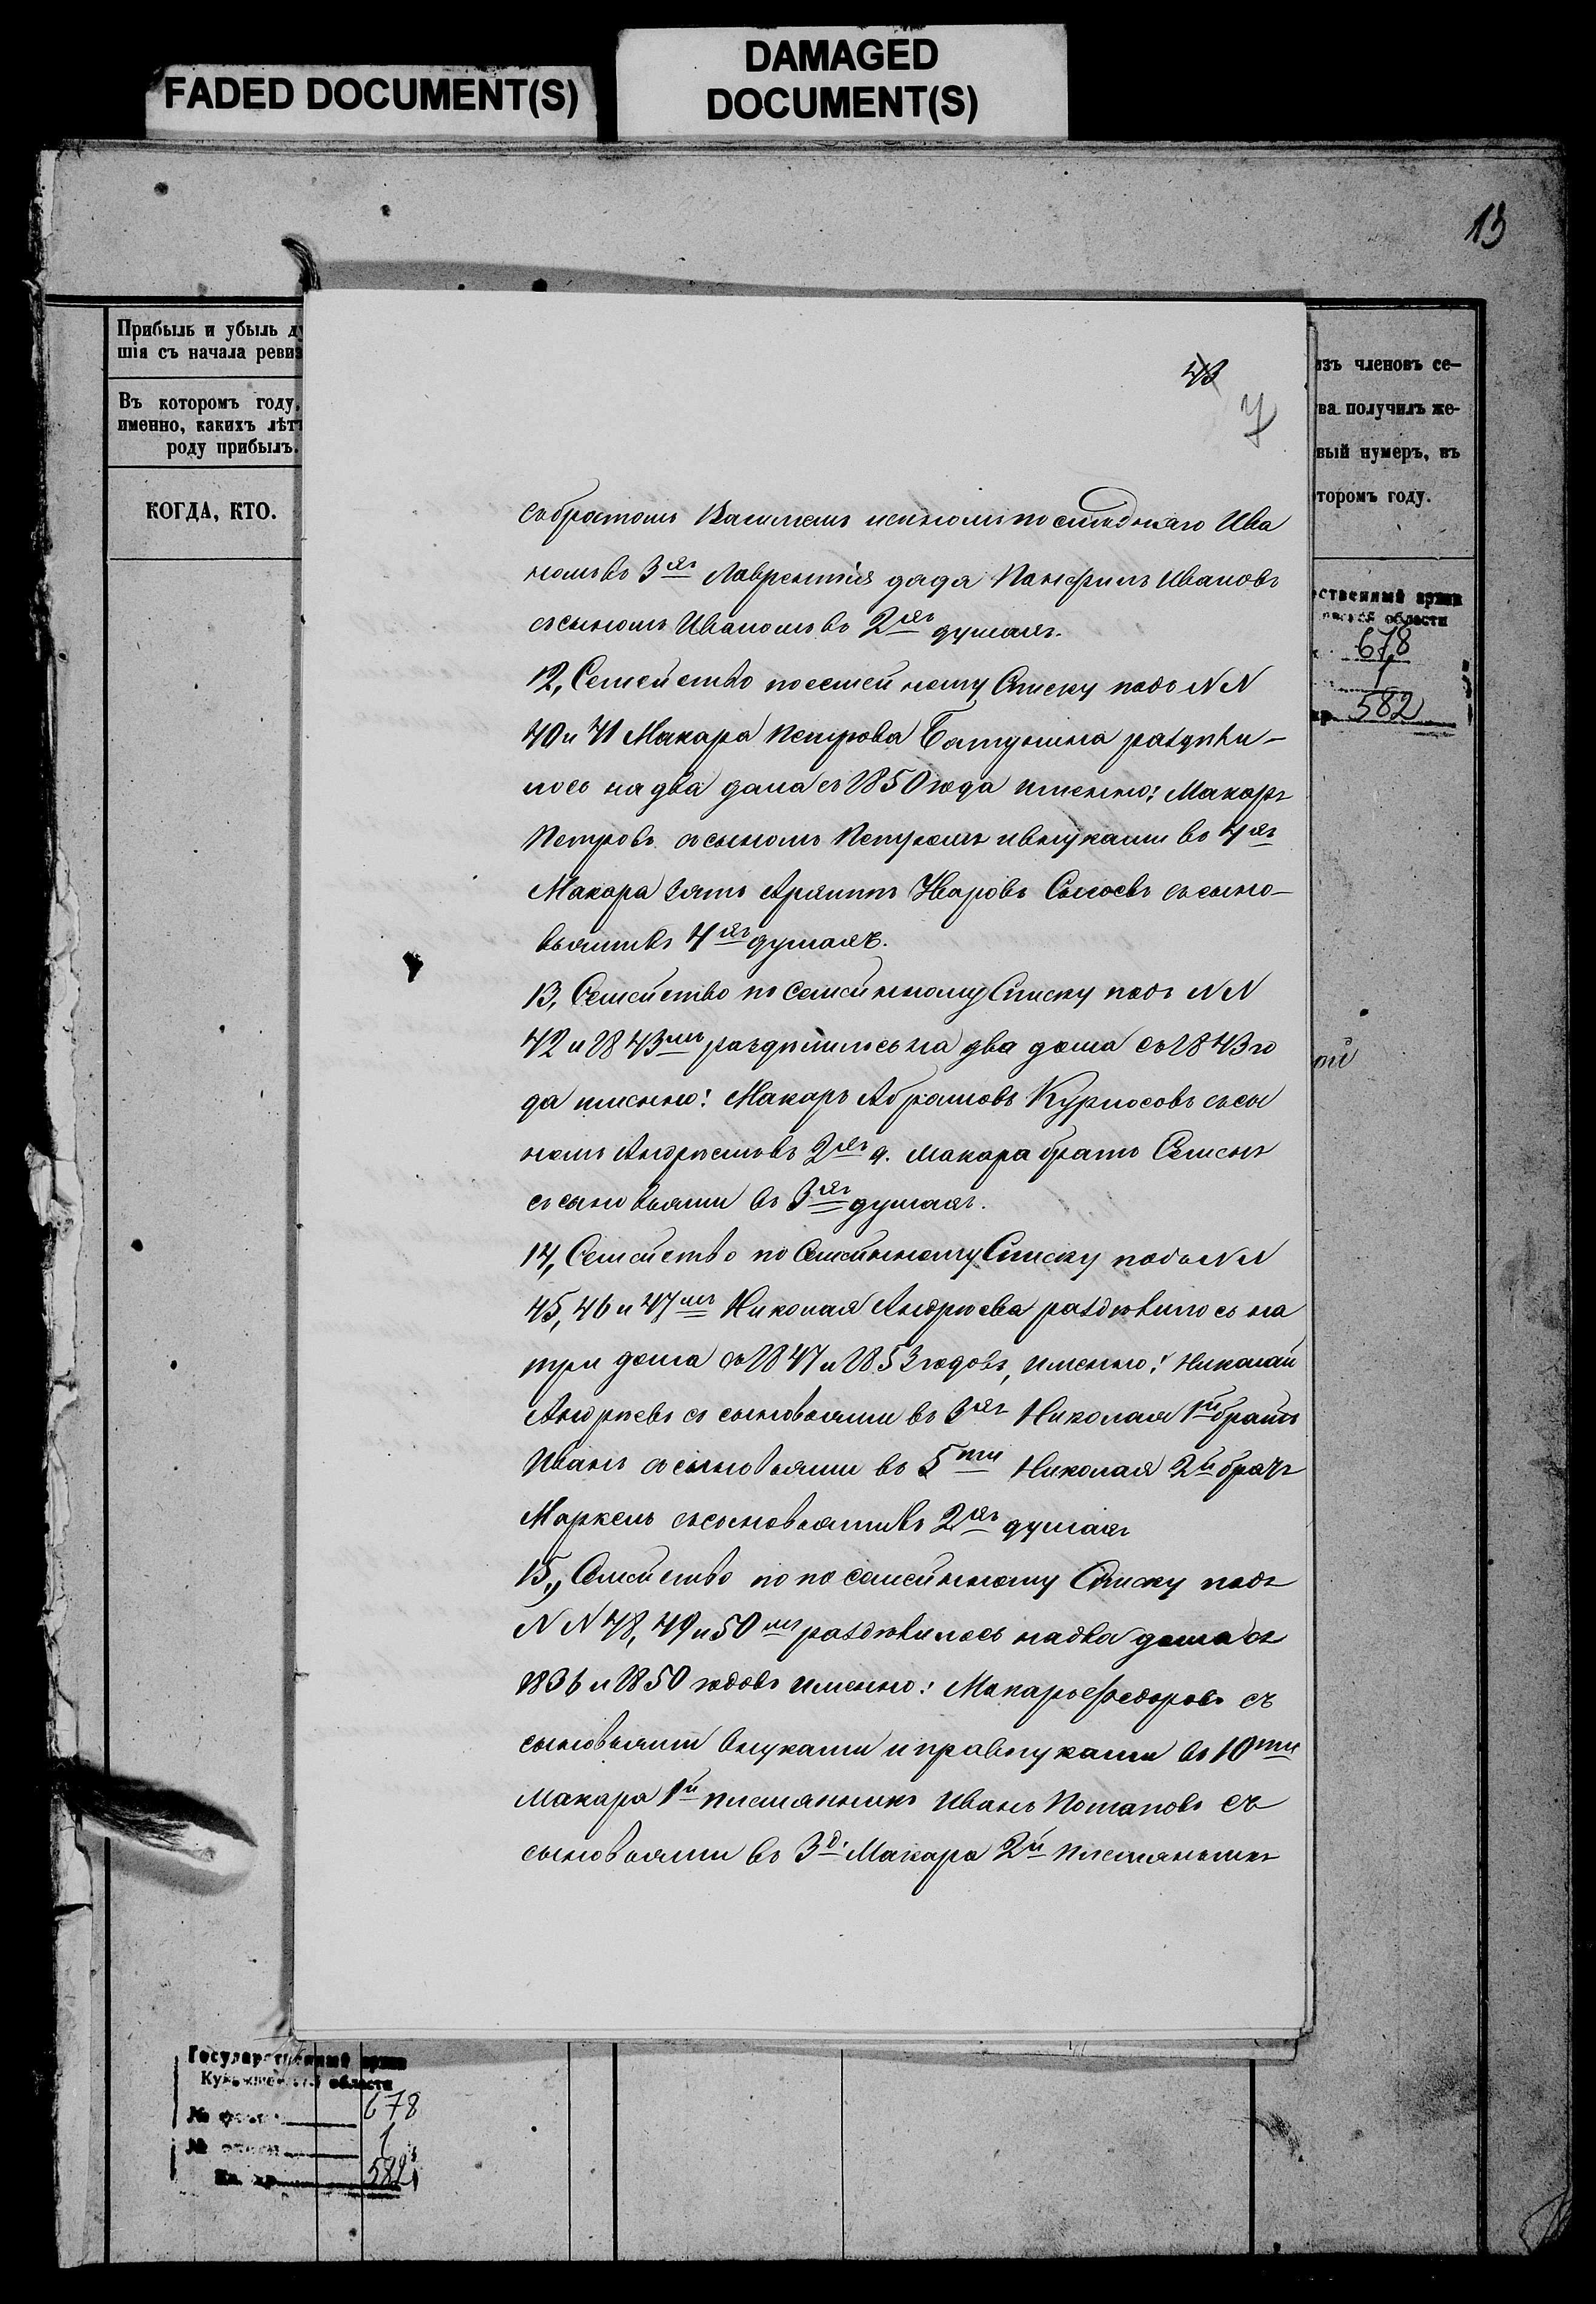 FADED DOCUMENT(S)
DAMAGED
DOCUMENT(S)
13
Прибыль и убыль д
шія съ начала ревиз
Въ которомъ году,
именно, какихъ лѣт
роду прибылъ.
КОГДА, КТО.
изъ членовъ се-
ва получилъ же-
вый нумеръ, въ
торомъ году.
ственный архив
области
678
1
582
43
7
съ братомъ Василемъ исыномъ последняго Ива
номъ въ 3хъ Лаврентія дядя Панфилъ Ивановъ
съ сыномъ Иваномъ въ 2хъ душахъ.
12, Семейство посемейному Списку подъ NN
40 и 41 Макара Петрова Батунина раздѣли-
лось на два дома съ 1850 года именно: Макаръ
Петровъ съ сыномъ Петромъ ивнуками въ 4хъ
Макара зять Уваровъ съ сыно-
вьями въ 4хъ душахъ.
13, Семейство по Семейному Списку подъ NN
42 и 1843мъ раздѣлилось на два дома съ 1843 го
да именно: Макаръ Абрамовъ Курносовъ съ сы
номъ Андреемъ въ 2хъ д. Макара братъ Семенъ
съ сыновьями въ 3хъ душахъ.
14, Семейство по Семейному Списку подъ NN
45, 46 и 47мъ Николая Андреева раздѣлилось на
три дома съ 1847 и 1853 годовъ, именно: Николай
Андреевъ съ сыновьями въ 3хъ Николая 1й братъ
Иванъ съ сыновьями въ 5ти Николая 2й братъ
Маркелъ съ сыновьями въ 2хъ душахъ
15, Семейство по по семейному Списку подъ
NN 48, 49 и 50мъ раздѣлилось на два дома съ
1836 и 1850 годовъ именно: Макаръ Федоровъ съ
сыновьями внуками и правнуками въ 10ти
Макара 1й племянникъ Иванъ Потаповъ съ
сыновьями въ 3д. Макара 2й племянникъ
Государственный архив
области
678
1
582